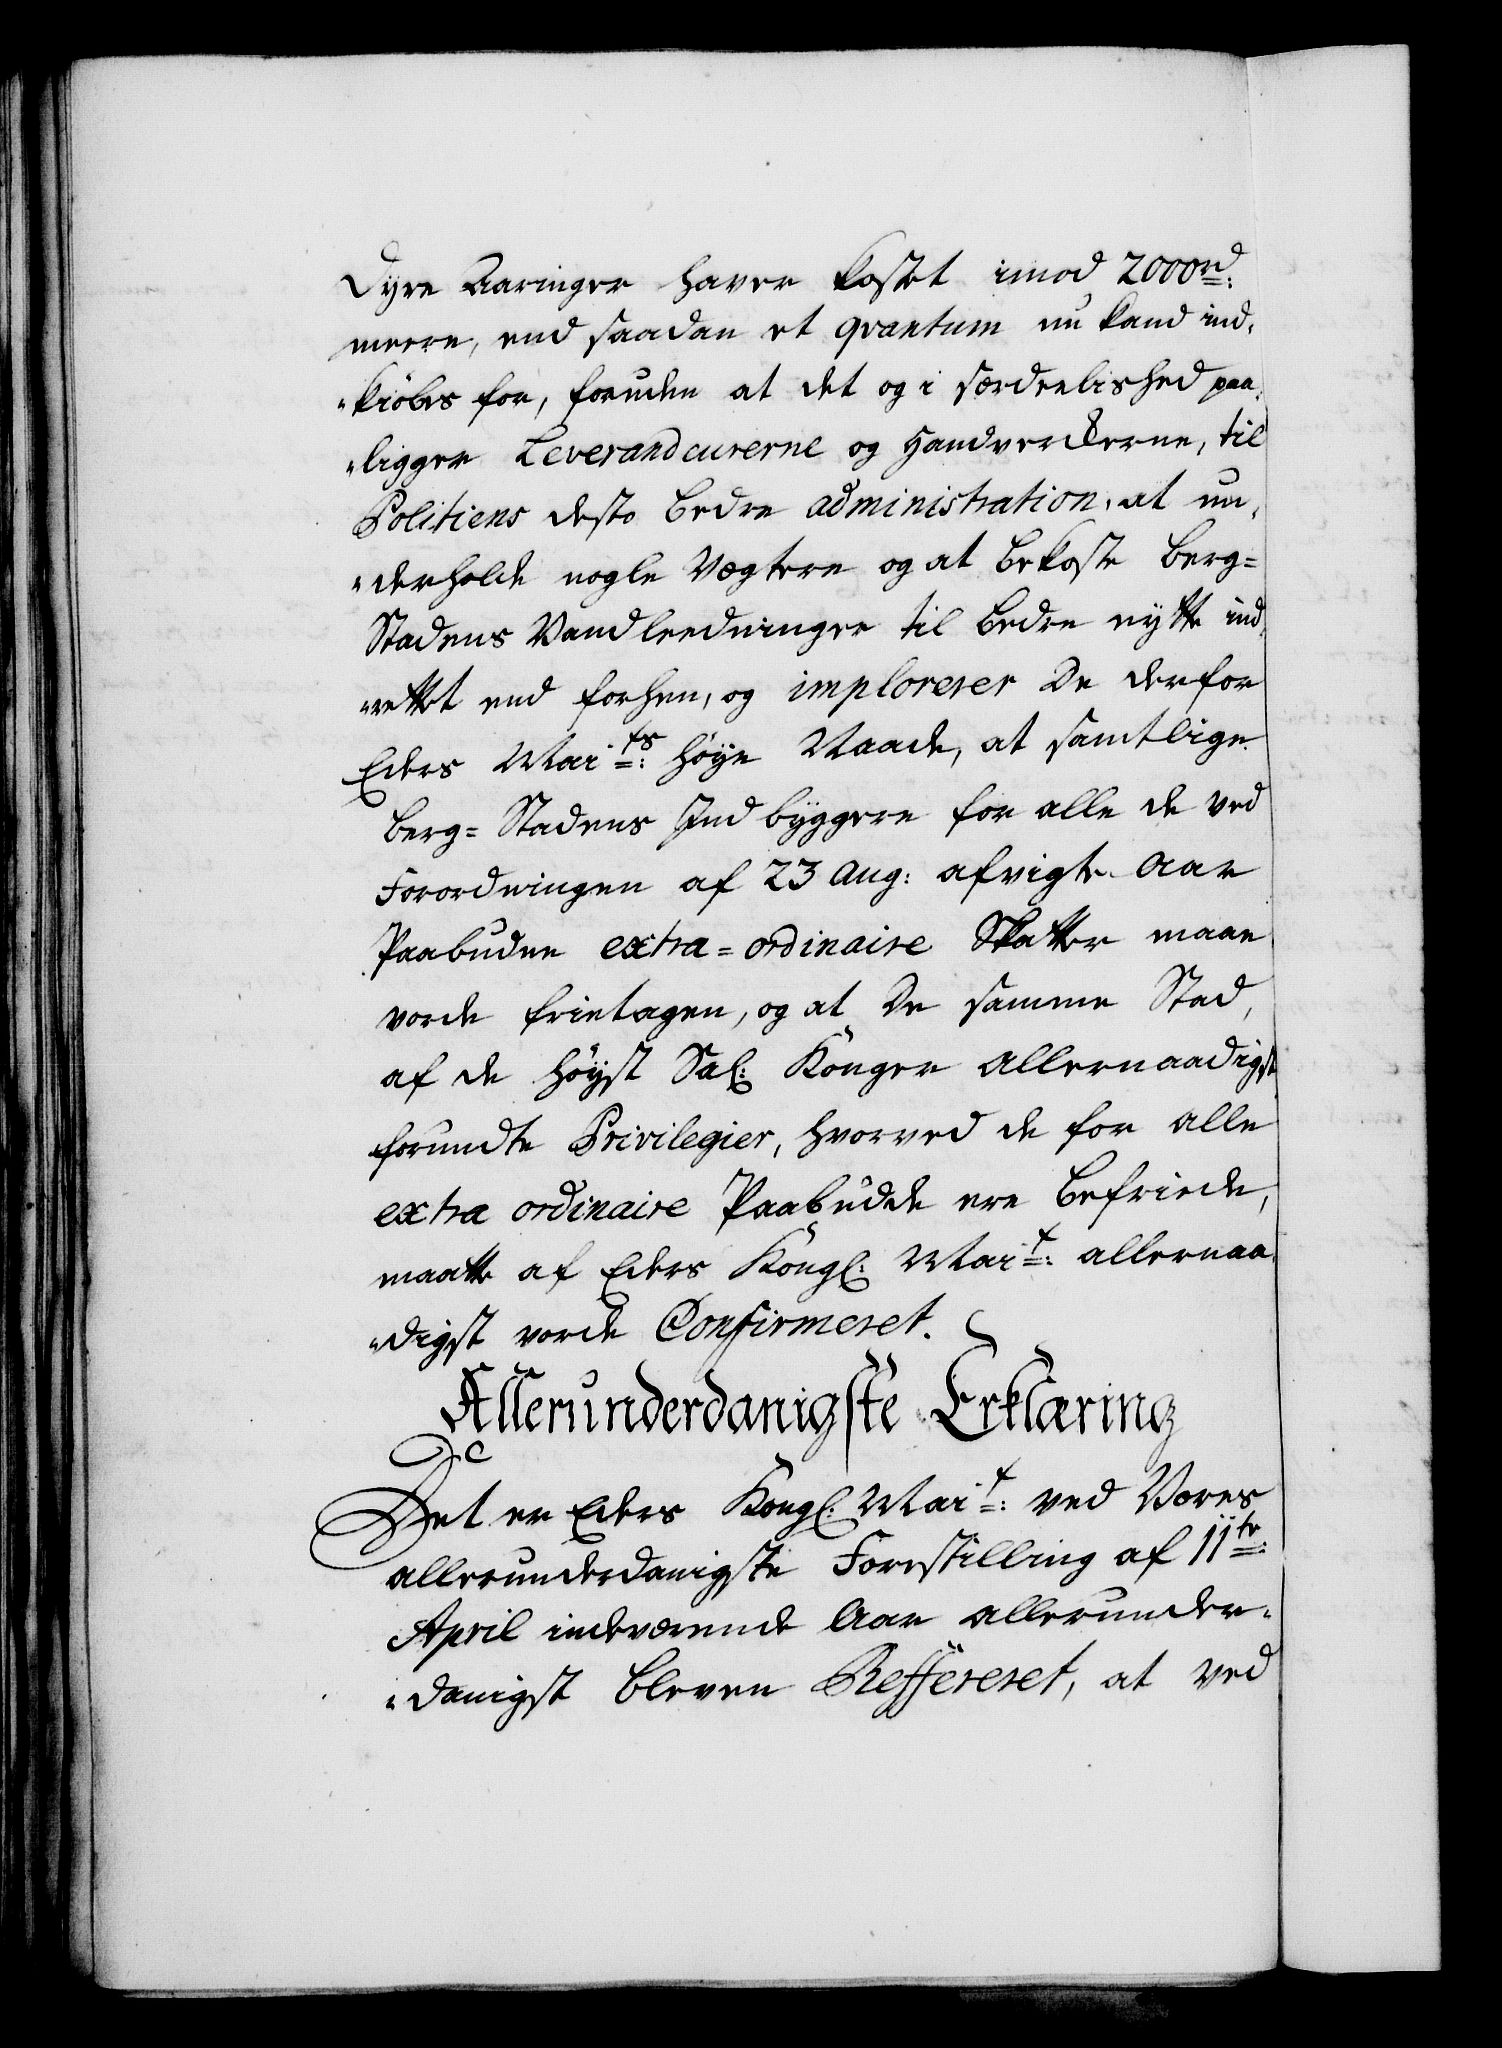 Dyre Aaringer haver kostet imod 2000rd:
meere, end saadan et qvantum nu kand ind,
"kiöbes for, foruden at det og i særdeelished paa,
"ligger Leverandeurerne og Handverckerne, til
Politiens desto bedre administration, at un,
"derholde nogle Vægtere og at bekoste Berg=
Stadens Vandleedninger til bedre nytte ind,
"rettet end forhen, og imploreret De derfor
Eders Mai:ts høye Naade, at samtlige
Berg= Stadens Indbyggere for alle de ved
Forordningen af 23 Aug: afvigte Aar
Paabudne extra=ordinaire Skatter maae
vorde frietagen, og at De samme Stad,
af de høyst Sal: Konger Allernaadigst
forundte Privilegier, hvorved de for alle
extra ordinaire Paabudde ere befriede,
maatte af Eders Kongl: Mai:t allernaa,
"digst vorde Confirmeret.
Allerunderdanigste Erklæring
Det er Eders Kongl: Mai:t ved Vores
allerunderdanigste Forestilling af 11te
April indeværende Aar allerunder,
"danigst bleven Reffereret, at ved